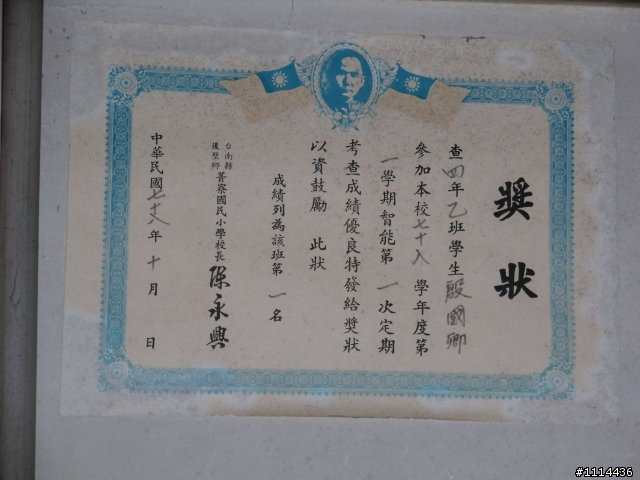 獎狀
查四年乙班學生殷國卿
參加本校七十八學年度第
一學期智能第一次定期
考查成績優良特發給獎狀
以資鼓勵 此狀
成績列為該班第一名
台南縣
後壁鄉
菁寮國民小學校長 陳永興
中華民國七十八年十月 日
#1114436